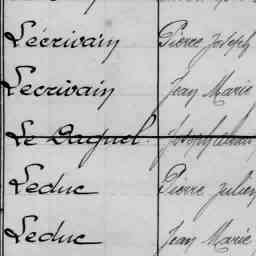 Lécrivain Pierre Joseph
Lecrivain Jean Marie
Le Daguel. Joseph
Leduc Pierre Julien
Leduc Jean Marie